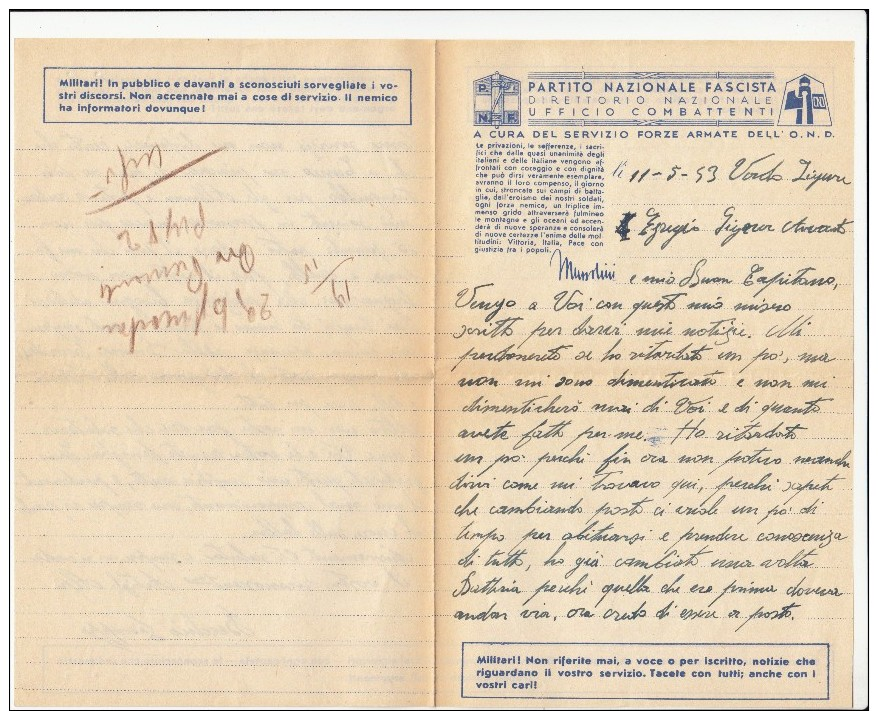 Militari! In pubblico e davanti a sconosciuti sorvegliate i vo-
stri discorsi. Non accennate mai a cose di servizio. Il nemico
ha informatori dovunque!
PARTITO NAZIONALE FASCISTA
DIRETTORIO NAZIONALE
UFFICIO COMBATTENTI
P. N. F.
A CURA DEL SERVIZIO FORZE ARMATE DELL'O.N.D.
Le privazioni, le sofferenze, i sacri-
fici che dalla quasi unanimità degli
italiani e delle italiane vengono af-
frontati con coraggio e con dignità
che può dirsi veramente esemplare,
avranno il loro compenso, il giorno
in cui, stroncate sui campi di batta-
glia, dall'eroismo dei nostri soldati,
ogni forza nemica, un triplice im-
menso grido attraverserà fulmineo
le montagne e gli oceani ed accen-
derà di nuove speranze e consolerà
di nuove certezze l'anime delle mol-
titudini: Vittoria, Italia, Pace con
giustizia fra i popoli.
Mussolini
li 11-5-43 Vado Ligure
Egregio Signor Avvocato
e mio Buon Capitano,
Vengo a Voi con questo mio misero
scritto per darvi mie notizie. Mi
perdonerete se ho ritardato un po', ma
non mi sono dimenticato e non mi
dimenticherò mai di Voi e di quanto
avete fatto per me. Ho ritardato
un po' perchi fin ora non potevo neanche
dirvi come mi trovavo qui, perchi sapete
che cambiando posto ci vuole un po' di
tempo per abituarsi e prendere conoscenza
di tutto, ho già cambiato una volta
Batteria perchi quella che ero prima doveva
andar via, ora credo di essere a posto.
Militari! Non riferite mai, a voce o per iscritto, notizie che
riguardano il vostro servizio. Tacete con tutti; anche con i
vostri cari!